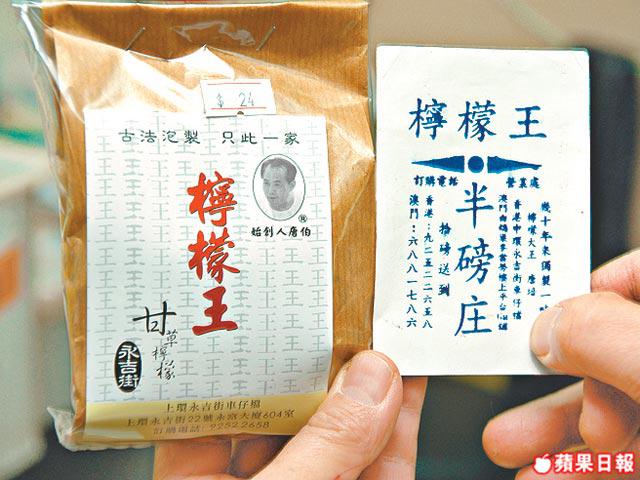 $ 24
古法泡製 只此一家
檸檬王
始創人唐伯
甘草檸檬
永吉街
上環永吉街車仔檔
上環永吉街22號永富大廈604室
訂購電話: 9252 2658
檸檬王
訂購電話
營業處
半磅庄
拾磅送到
香港：九二五二二六五八
澳門：六八八一七八六
幾十年來獨製一味
檸檬大王 唐培
香港中環永吉街車仔檔
蘋果日報